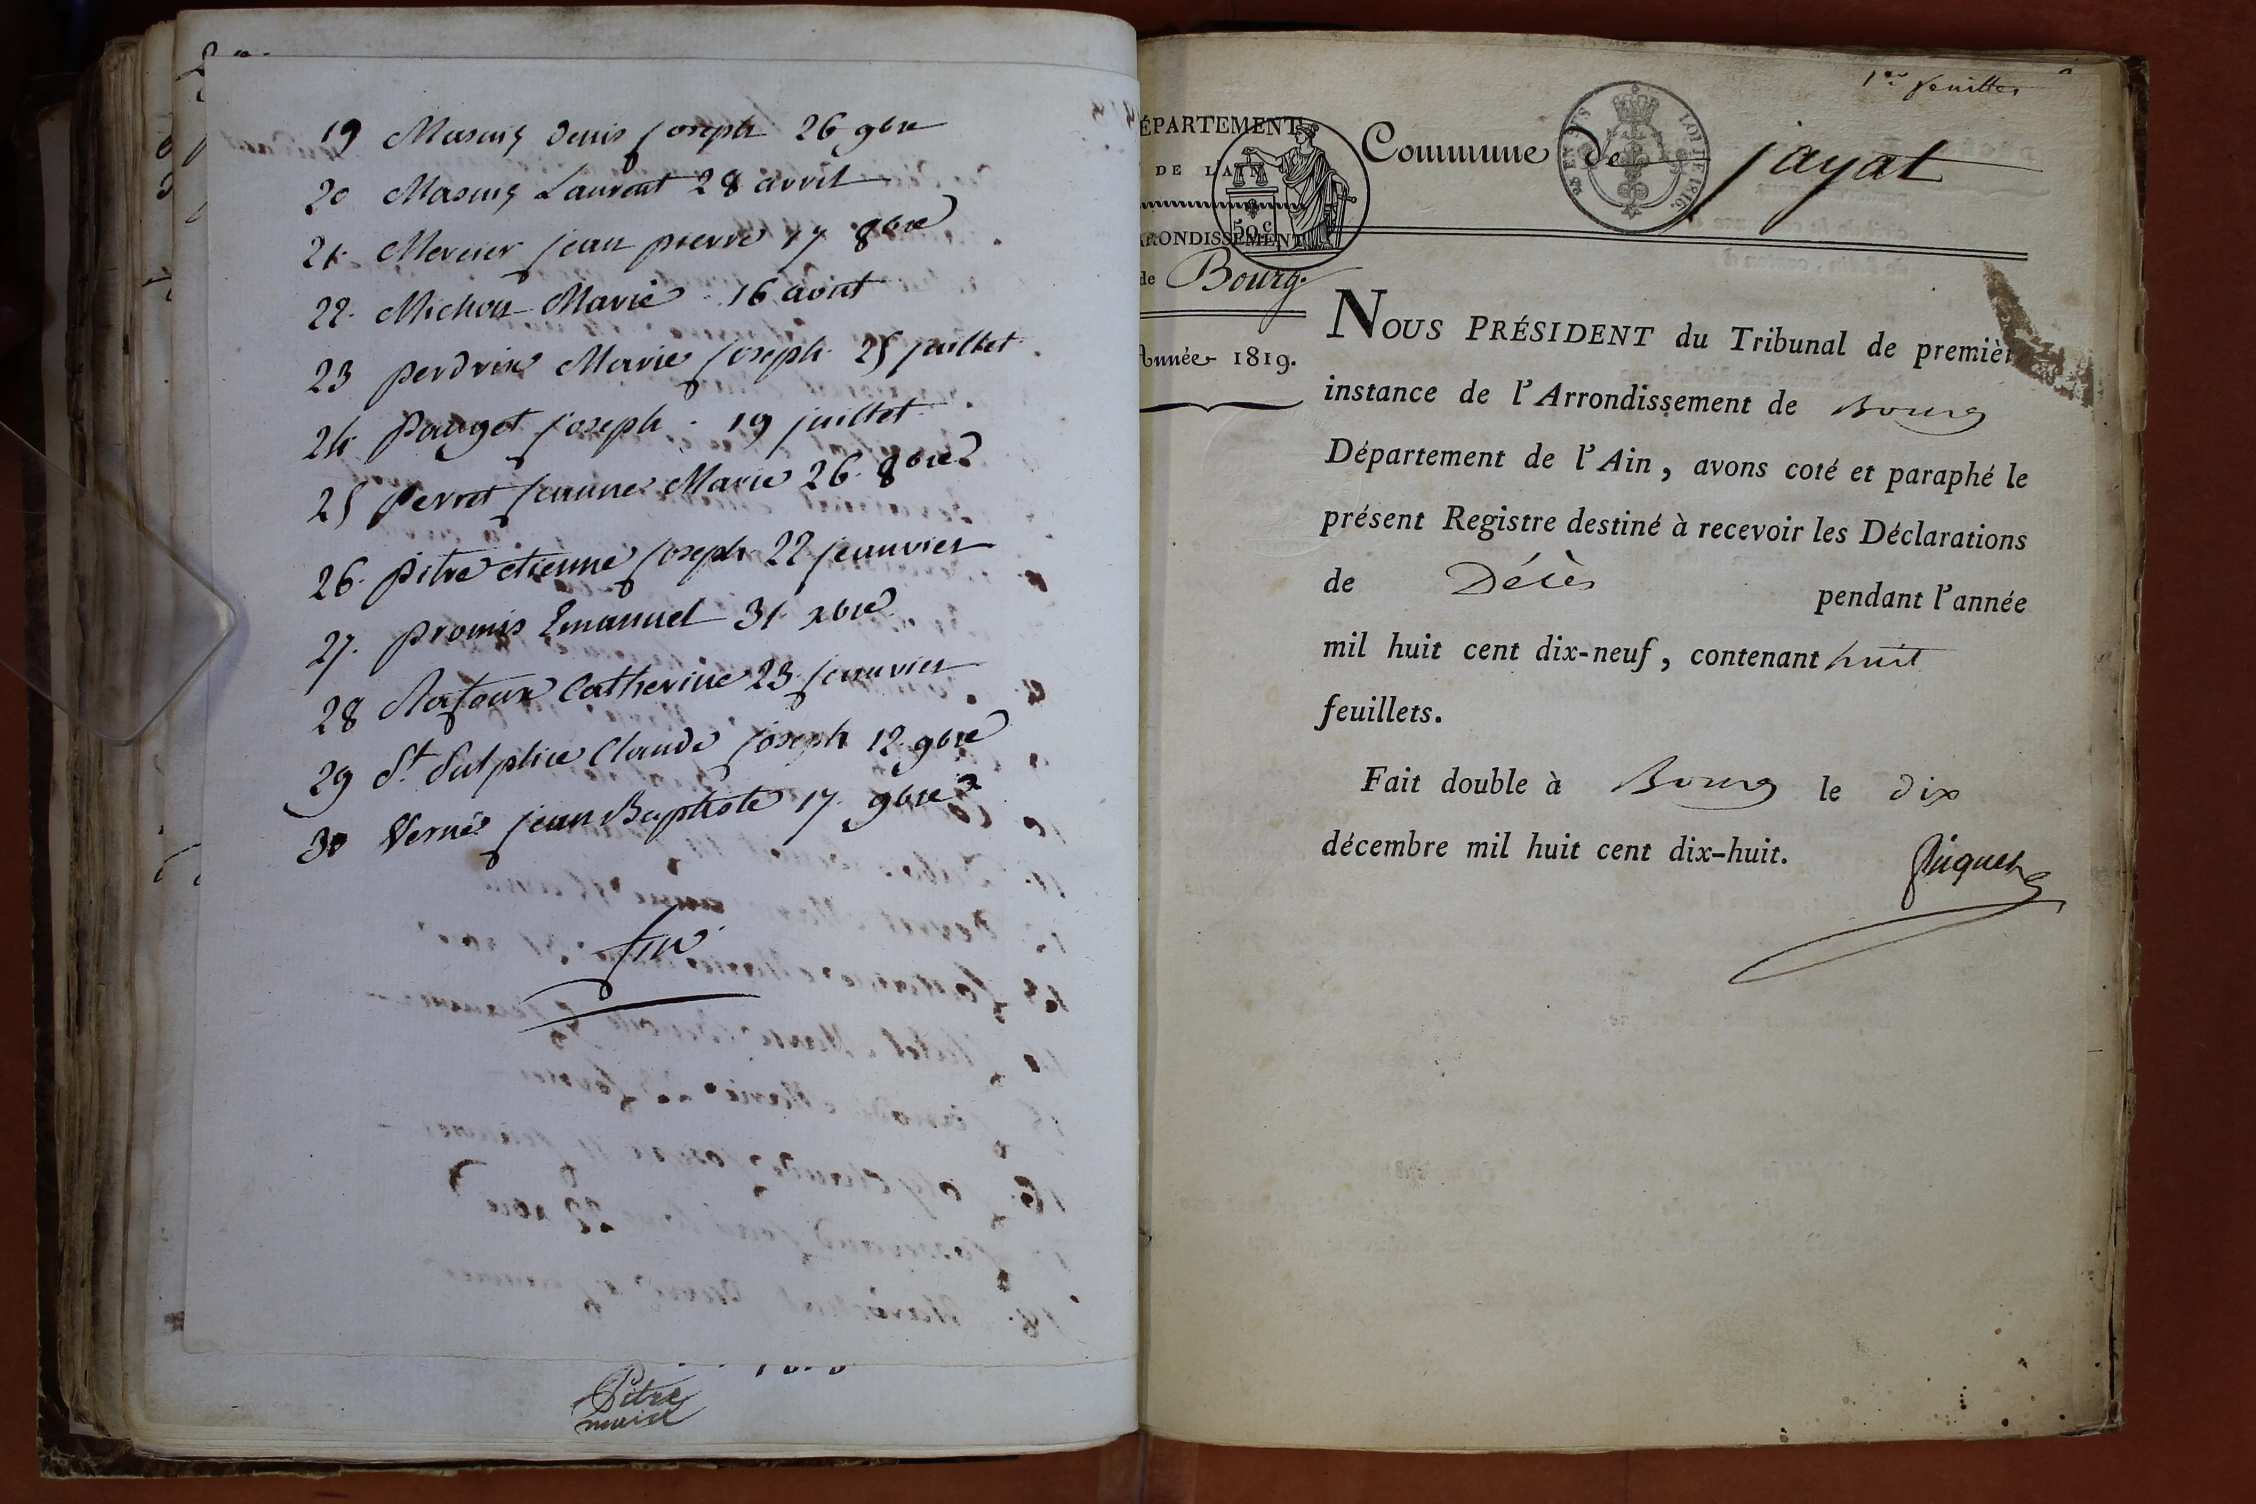 19 Masuy Denis joseph 26 9bre
20 Masuy Laurent 28 avril
21. Mercier jean pierre 17 8bre
22. Michon Marie 16 aout
23 perdrix Marie joseph 25 juillet
24 pauget joseph. 19 juillet
25 perret jeanne Marie 26. 8bre
26. pitre etienne joseph 22 janvier
27. promis Emanuel 31. xbre
28 Catherine 23 janvier
29 St. Sulplice Claude joseph 12 9bre
30 Verne jean Baptiste 17 9bre
fin
Pitre
maire
1er feuillet
ÉPARTEMENT
DE L'AIN
RRONDISSEMENT
de Bourg.
Année 1819.
50 c
Commune de jayat
LOI DE 1816.
NOUS PRÉSIDENT du Tribunal de premièr
instance de l'Arrondissement de Bourg
Département de l'Ain, avons coté et paraphé le
présent Registre destiné à recevoir les Déclarations
de Décès pendant l'année
mil huit cent dix-neuf, contenant huit
feuillets.
Fait double à Bourg le dix
décembre mil huit cent dix-huit.